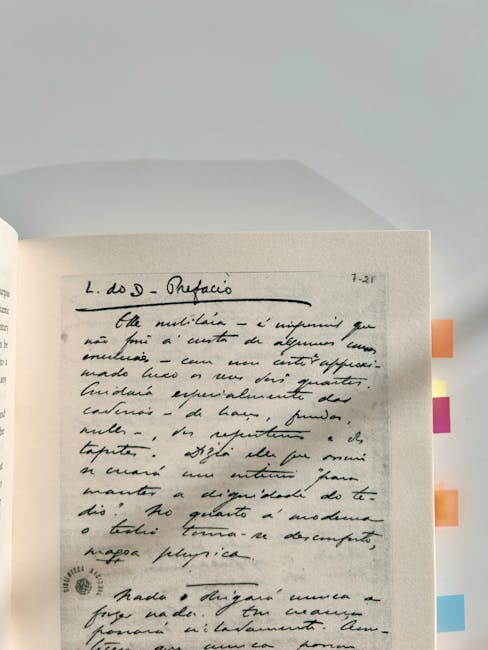 L. do D - Prefacio
7-21
Elle mobilára – é impossivel que
não fosse á custa de algumas cousas
– com um certo e approxi-
mado luxo os seus dois quartos.
Cuidára especialmente das
cadeiras – de braços, fundas,
molles –, dos reposteiros e dos
tapetes. Dizia elle que assim
se creára um interior "para
manter a dignidade do te-
dio". No quarto á moderna
o tedio torna-se desconforto,
magoa physica.
Nada o obrigára nunca a
fazer nada. Em creança
passára isoladamente.
que nunca passou
BIBLIOTECA NACIONAL